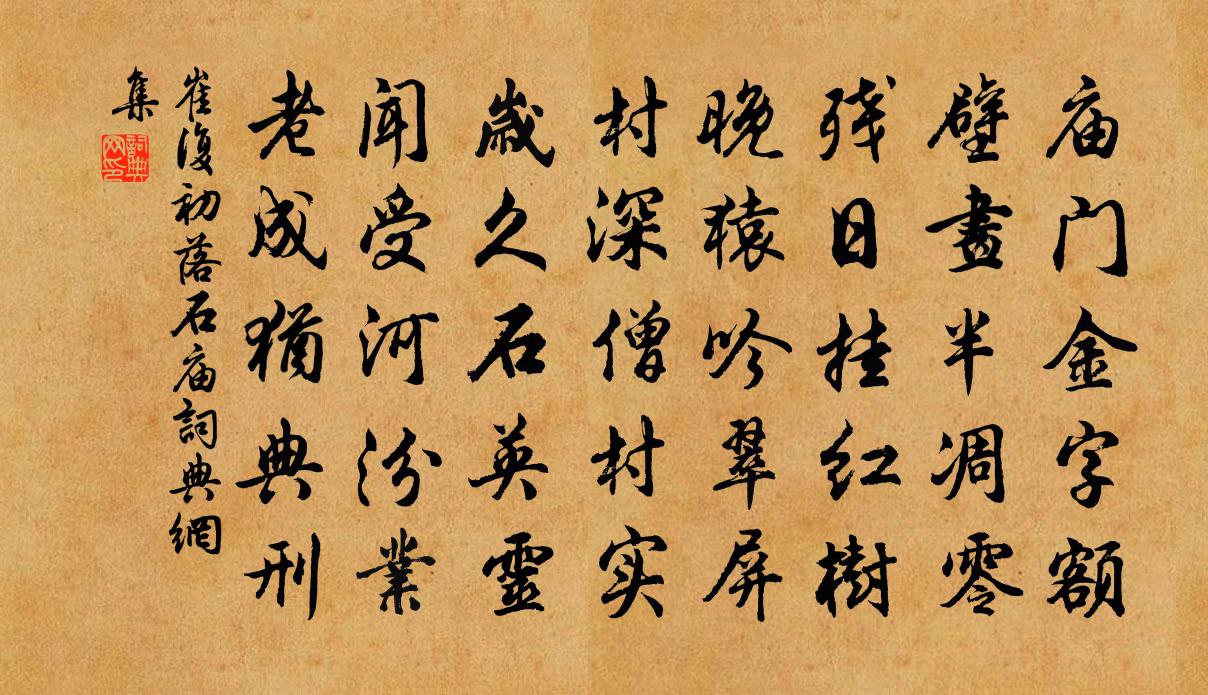 庙门金字额
壁畫半凋零
残日挂红樹
晚猿吟翠屏
村深僧村实
歲久石英靈
闻受河汾業
老成猶典刑
崔復初落石庙詞典網
集
詞典網印